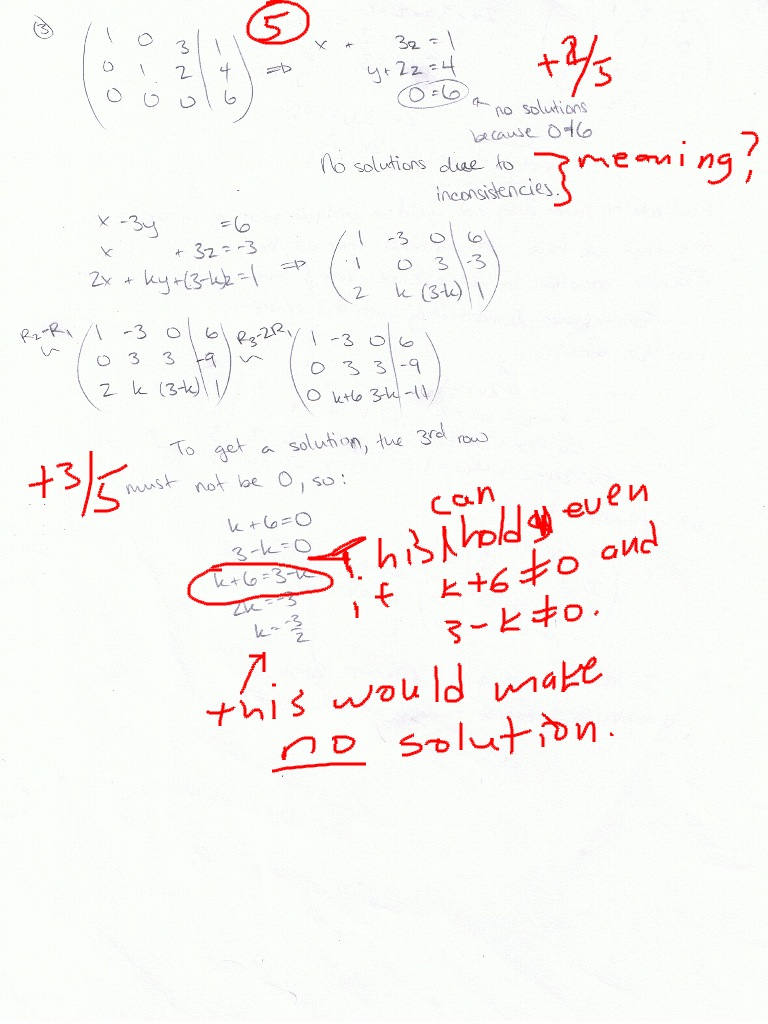 ③
5
( 1 0 3 | 1 ) x + 3z = 1
( 0 1 2 | 4 ) ⇒ y + 2z = 4
( 0 0 0 | 6 ) 0 = 6
no solutions
because 0≠6
+2/5
No solutions due to
inconsistencies. } meaning?
x - 3y = 6
x + 3z = -3
2x + ky + (3-k)z = 1
⇒ ( 1 -3 0 | 6 )
( 1 0 3 | -3 )
( 2 k (3-k) | 1 )
R2-R1
~
( 1 -3 0 | 6 )
( 0 3 3 | -9 )
( 2 k (3-k) | 1 )
R3-2R1
~
( 1 -3 0 | 6 )
( 0 3 3 | -9 )
( 0 k+6 3-k | -11 )
To get a solution, the 3rd row
must not be 0, so:
+3/5
k+6=0
3-k=0
k+6=3-k
2k=-3
k=-3/2
This can hold even
if k+6≠0 and
3-k≠0.
this would make
no solution.